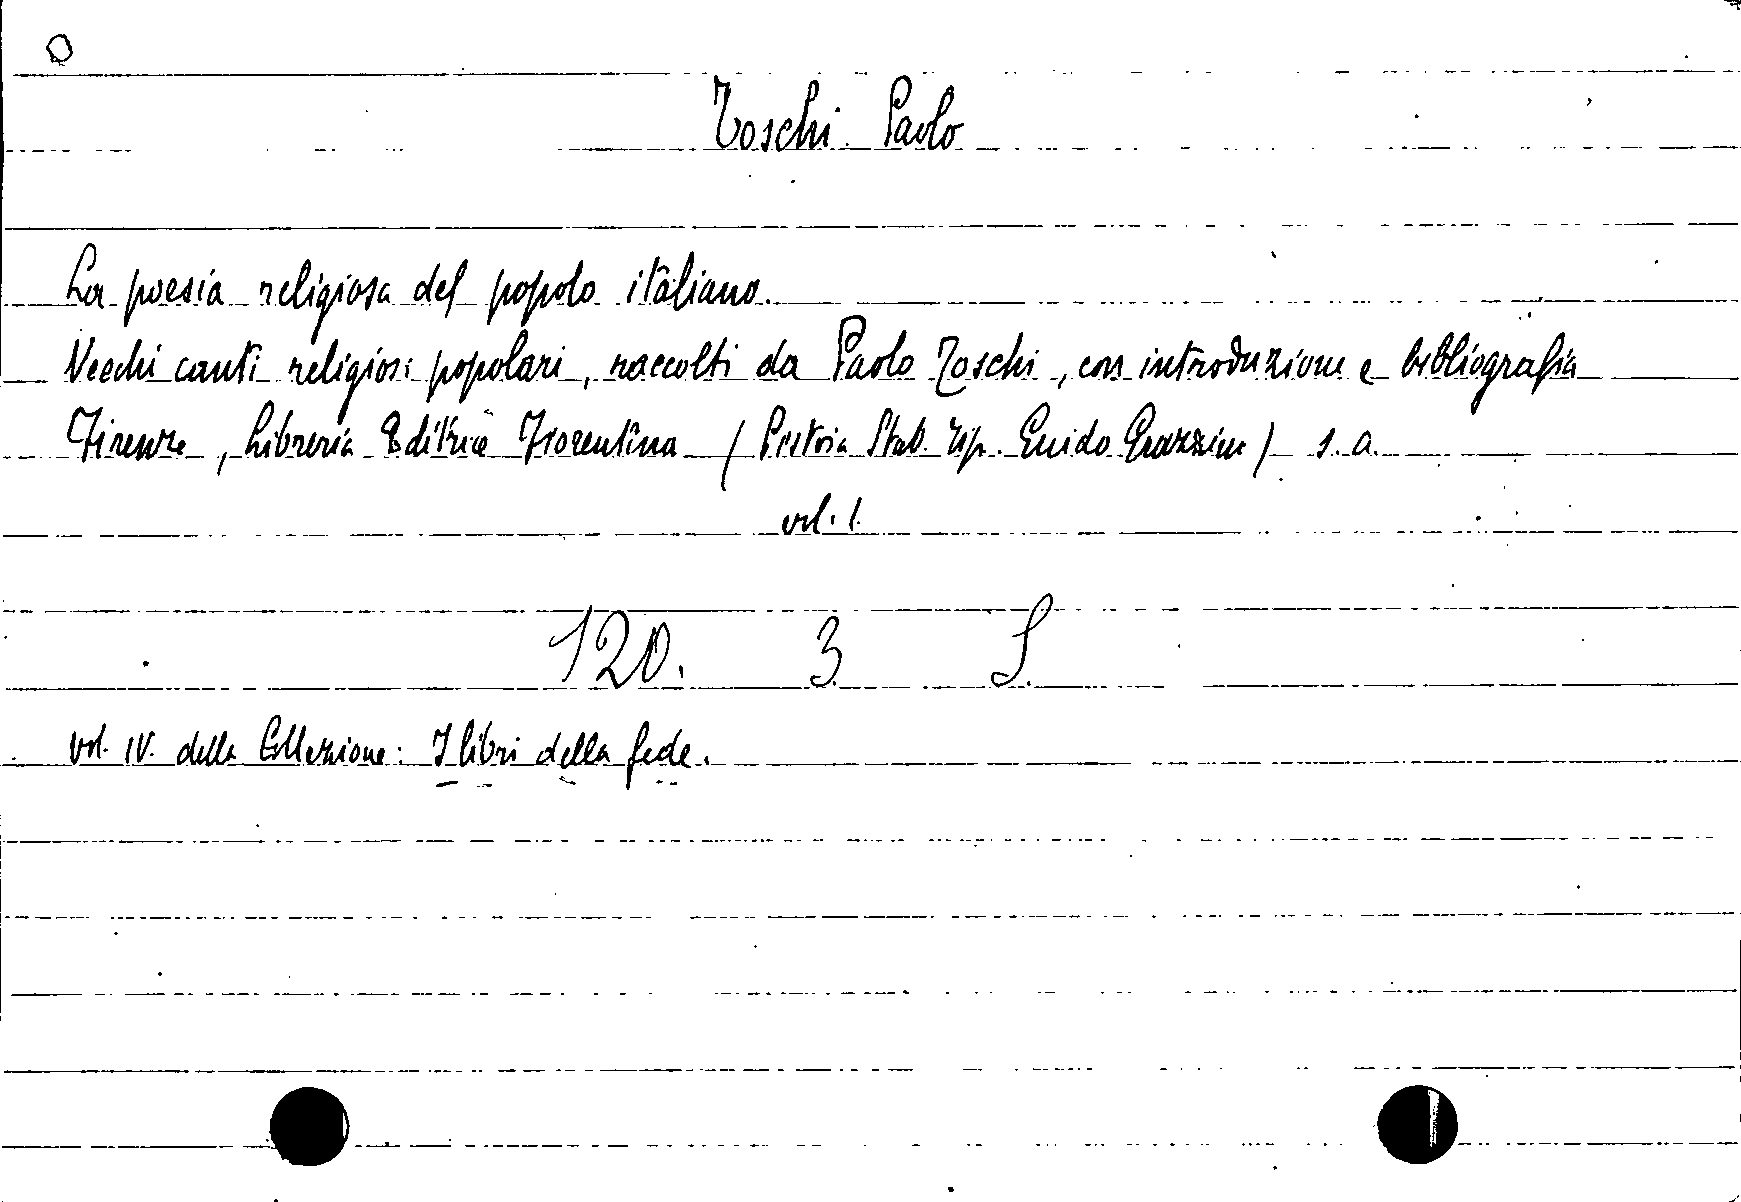 Toschi Paolo
La poesia religiosa del popolo italiano.
Vecchi canti religiosi popolari, raccolti da Paolo Toschi, con introduzione e bibliografia
Firenze, Libreria Editrice Fiorentina (Pistoia Stab. Tip. Guido Grazzini) s.a.
vol. 1.
120. 3 S.
vol. IV. della Collezione: I libri della fede.